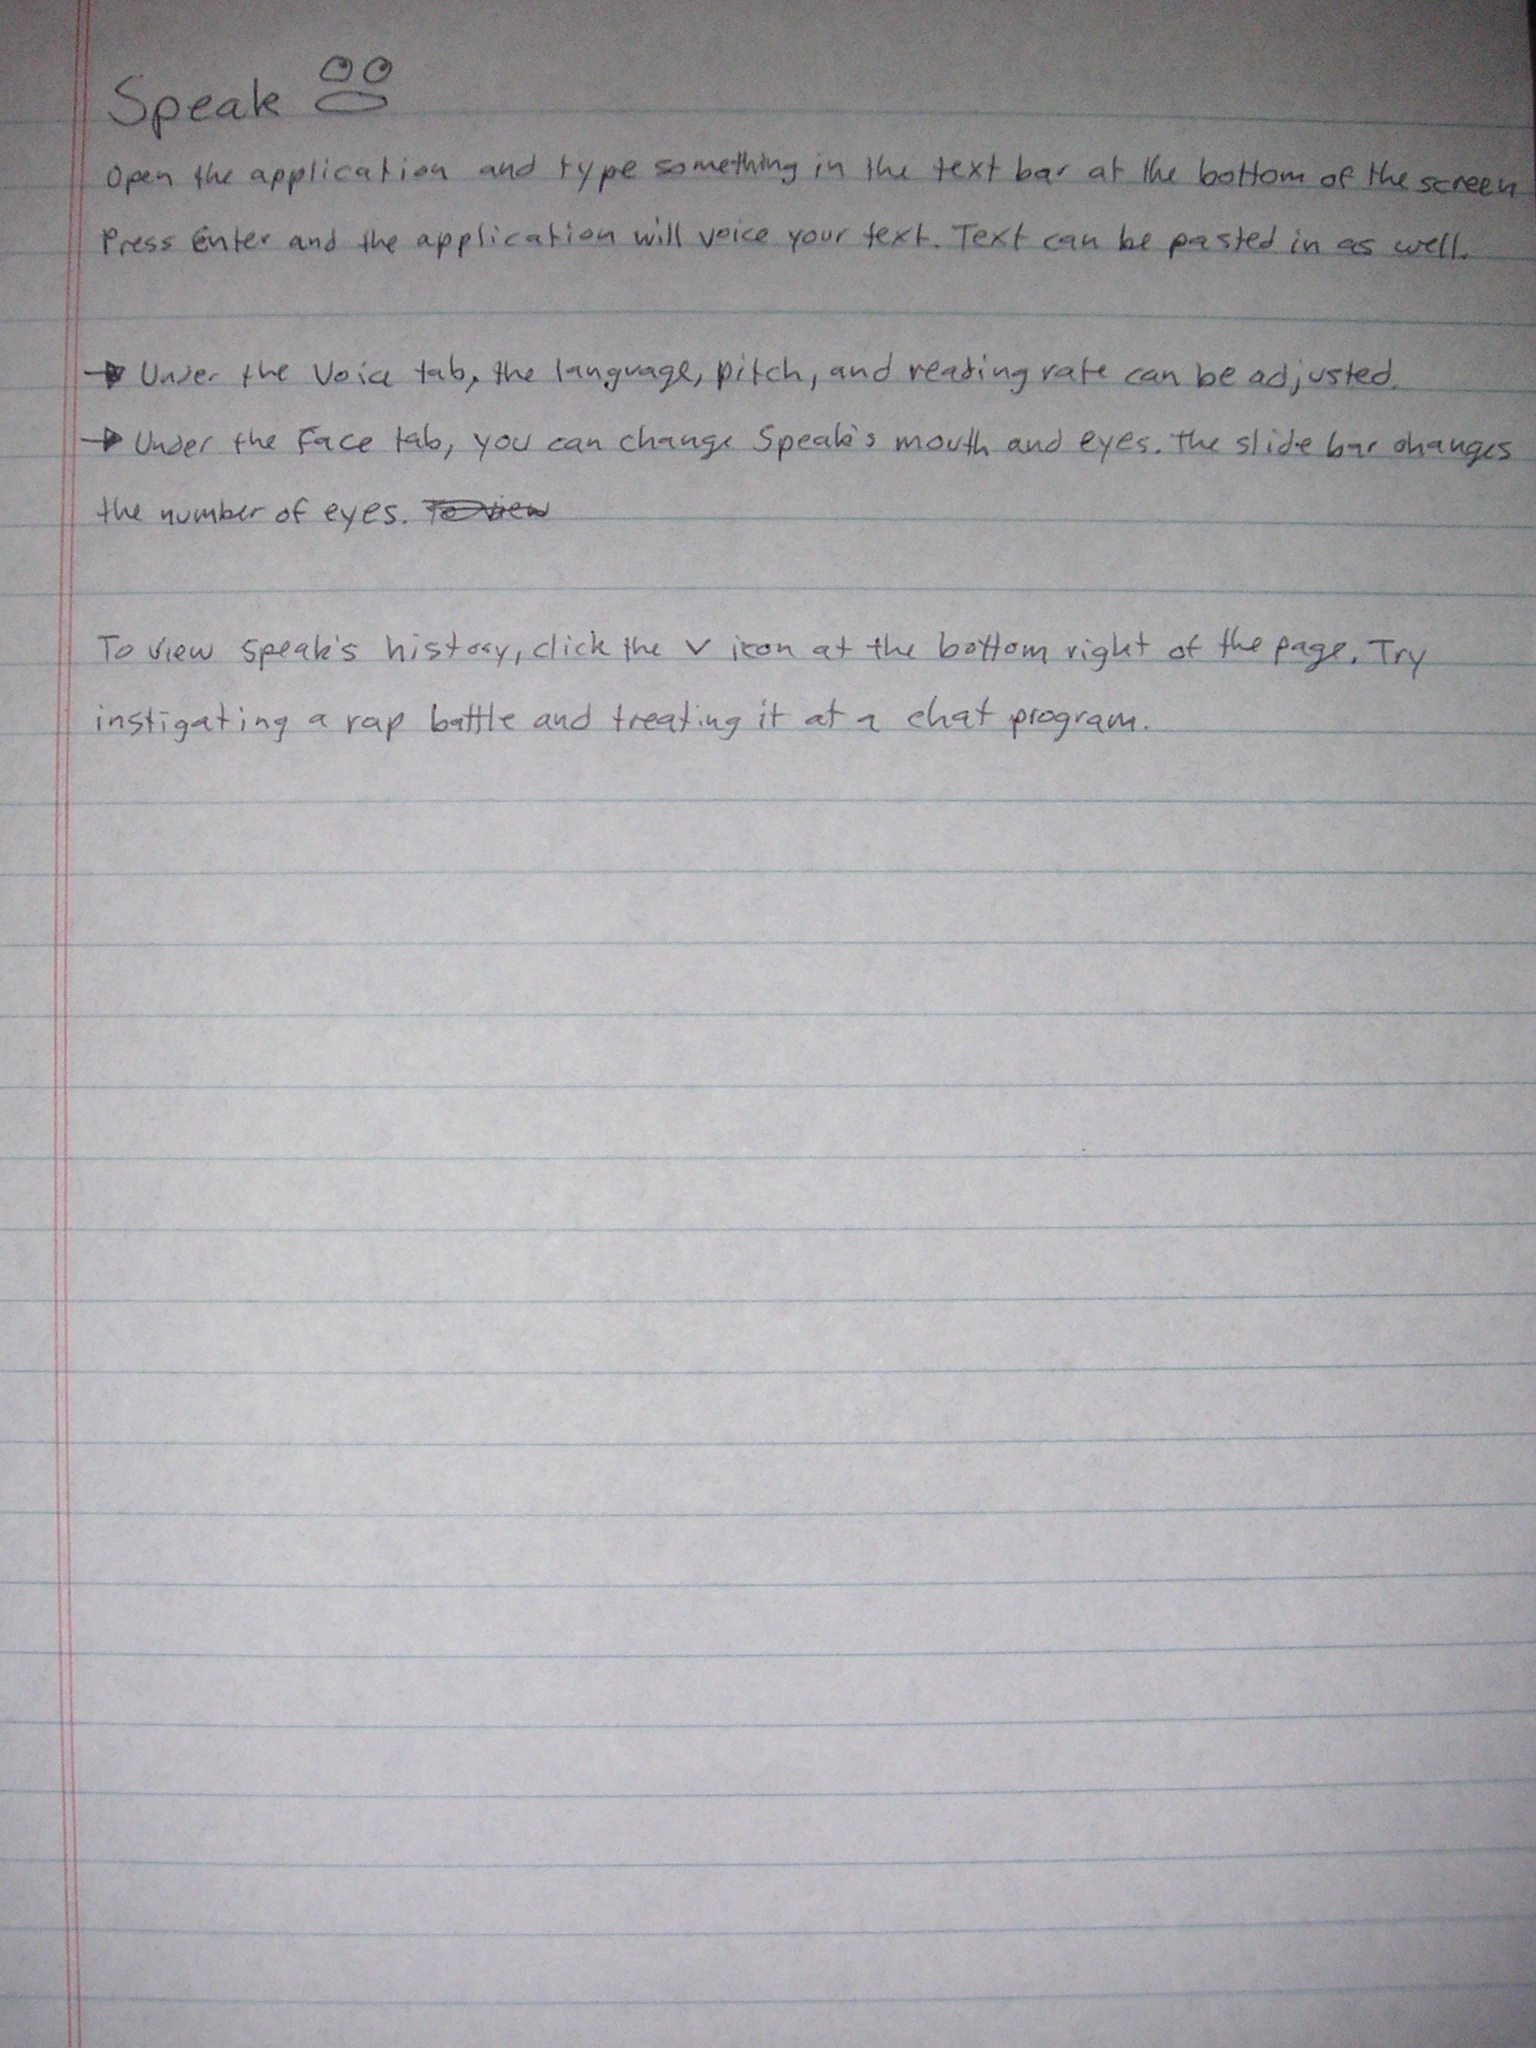 Speak
Open the application and type something in the text bar at the bottom of the screen
Press Enter and the application will voice your text. Text can be pasted in as well.
→ Under the Voice tab, the language, pitch, and reading rate can be adjusted.
→ Under the Face tab, you can change Speak's mouth and eyes. The slide bar changes
the number of eyes. To view
To view Speak's history, click the V icon at the bottom right of the page. Try
instigating a rap battle and treating it at a chat program.